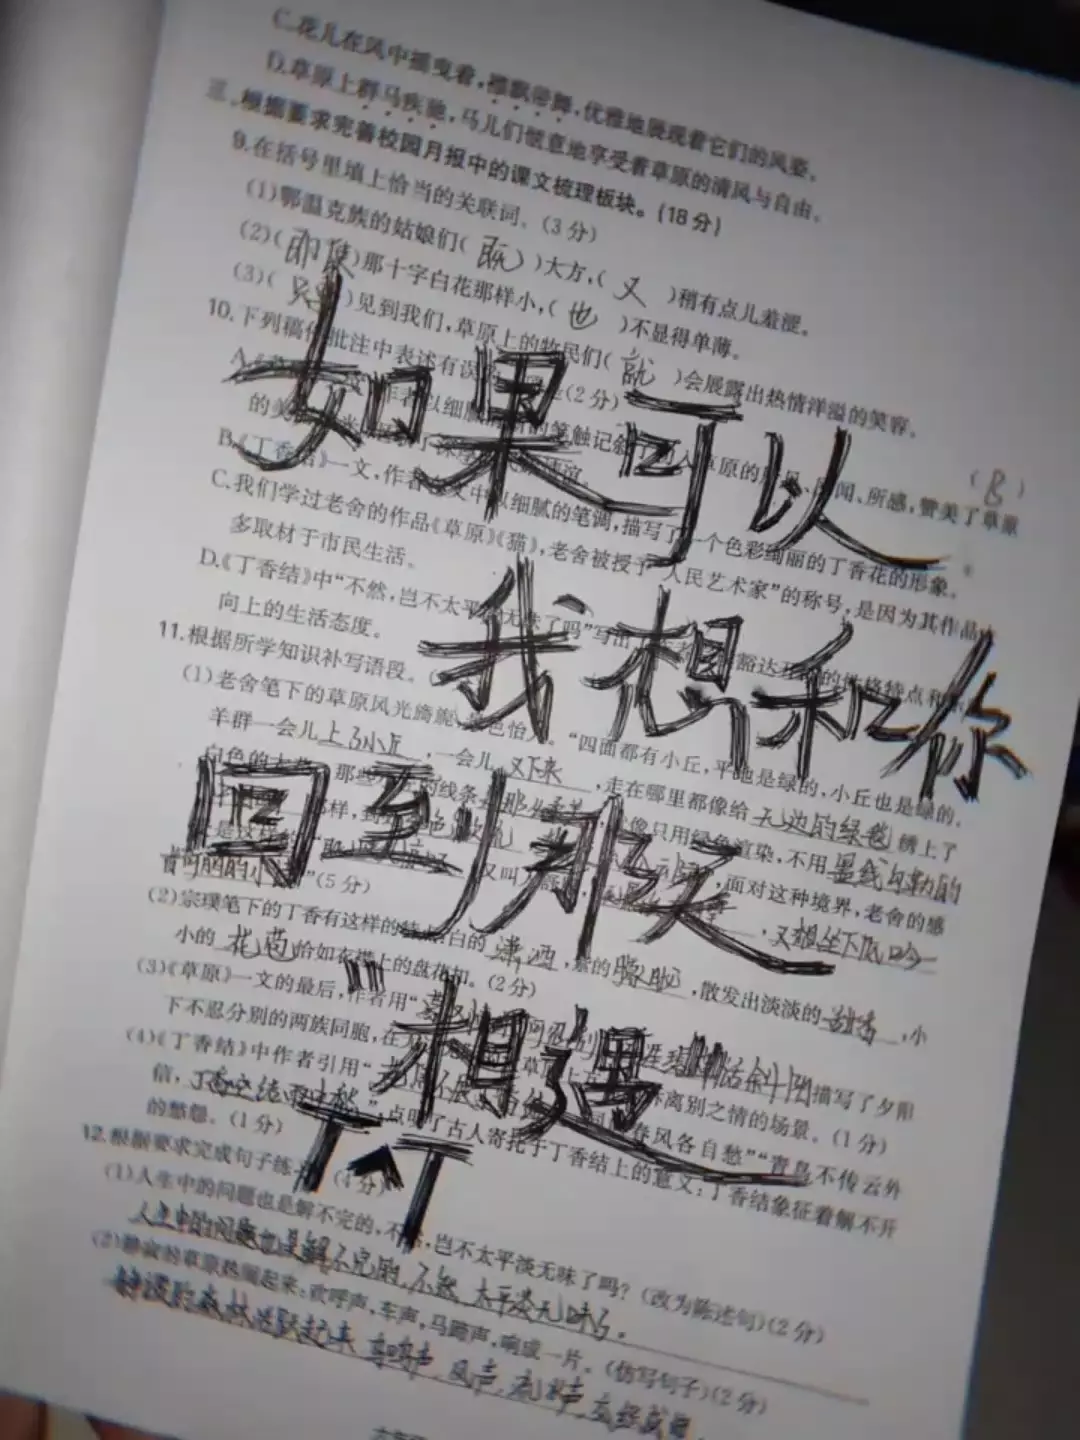 C.花儿在风中摇曳着,襟飘带舞,优雅地展现着它们的风姿。
D.草原上群马疾驰,马儿们惬意地享受着草原的清风与自由。
三、根据要求完善校园月报中的课文梳理板块。(18分)
9.在括号里填上恰当的关联词。(3分)
(1)鄂温克族的姑娘们(既)大方,(又)稍有点儿羞涩。
(2)(即使)那十字白花那样小,(也)不显得单薄。
(3)(只要)见到我们,草原上的牧民们(就)会展露出热情洋溢的笑容。
10.下列稿件批注中表述有误的(2分)
(B)
作者以细腻的笔触记叙、所闻、所感,赞美了草原
的美
B.《丁香结》一文,作者以细腻的笔调,描写了一个色彩绚丽的丁香花的形象。
C.我们学过老舍的作品《草原》《猫》,老舍被授予“人民艺术家”的称号,是因为其作品大
多取材于市民生活。
D.《丁香结》中“不然,岂不太平淡无味了吗”写出豁达开朗的性格特点和
向上的生活态度。
11.根据所学知识补写语段。
(1)老舍笔下的草原风光旖旎,景色怡人。“四面都有小丘,平地是绿的,小丘也是绿的。
羊群一会儿上了小丘,一会儿又下来,走在哪里都像给无边的绿毯绣上了
白色的大花。那些小丘的线条是那么柔美,像只用绿色渲染,不用墨线勾勒的
”(5分)又叫人舒服,面对这种境界,老舍的感
,又想坐下低吟一
首奇丽的小诗
(2)宗璞笔下的丁香有这样的特点:白的潇洒,紫的朦胧,散发出淡淡的甜香,小
小的花苞恰如衣襟上的盘花扣。(2分)
(3)《草原》一文的最后,作者用“蒙汉情深何忍别,天涯碧草话斜阳描写了夕阳
下不忍分别的两族同胞,在草原上话离别之情的场景。(1分)
(4)《丁香结》中作者引用“春风各自愁”“青鸟不传云外
信,丁香空结雨中愁”,点明了古人寄托于丁香结上的意义:丁香结象征着解不开
的愁怨。(1分)
12.根据要求完成句子练习。(4分)
(1)人生中的问题也是解不完的,不然,岂不太平淡无味了吗?(改为陈述句)(2分)
人生中的问题也是解不完的,不然,太平淡无味了。
(2)静寂的草原热闹起来:欢呼声,车声,马蹄声,响成一片。(仿写句子)(2分)
如果可以
我想和你
回至则那天
"相遇
TAT